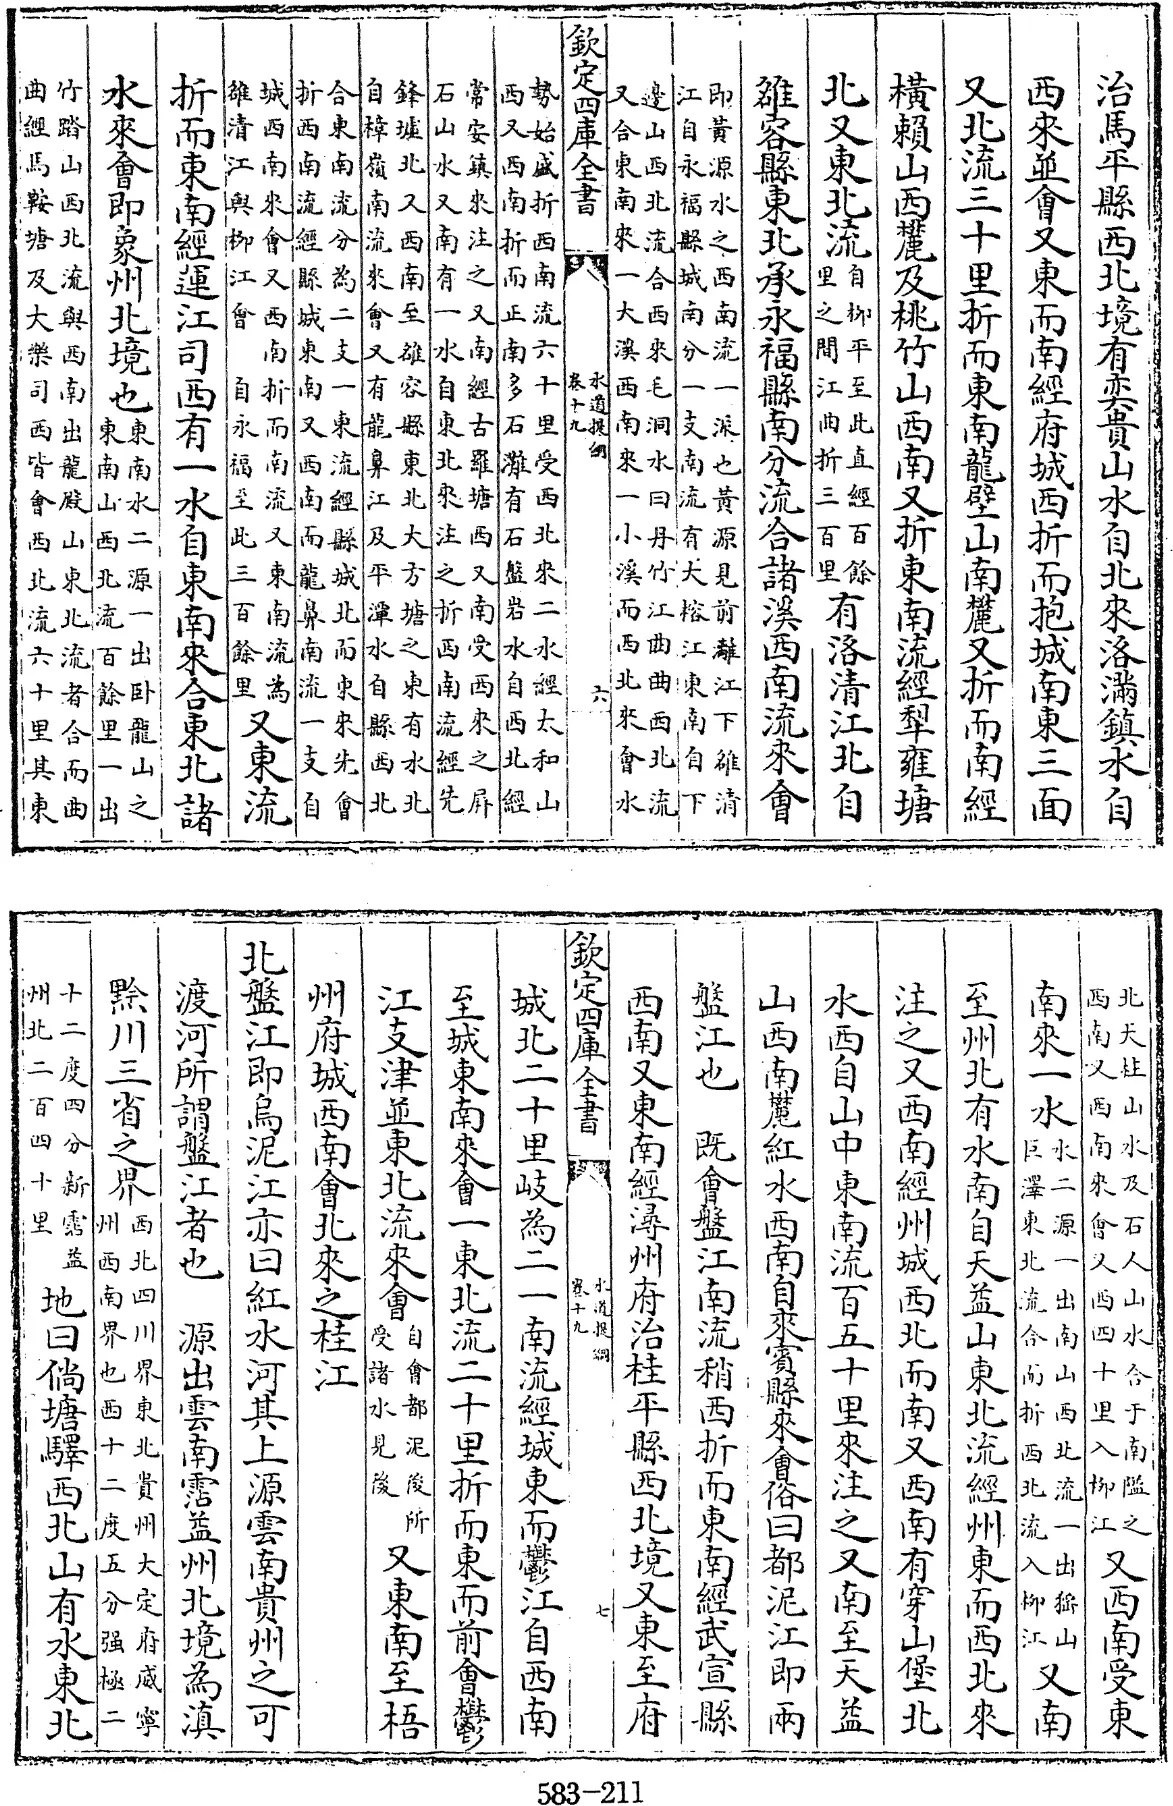 治馬平縣西北境有奕貴山水自北來洛滿鎮水自
西來並會又東而南經府城西折而抱城南東三面
又北流三十里折而東南龍壁山南麓又折而南經
橫賴山西麓及桃竹山西南又折東南流經犁雍塘
北又東北流自柳平至此直經百餘里之間江曲折三百里有洛清江北自
雒容縣東北承永福縣南分流合諸溪西南流來會
即黃源水之西南流一派也黃源見前灕江下雒清
江自永福縣城南分一支南流有大榕江東南自下
邊山西北流合西來毛洞水曰丹竹江曲曲西北流
又合東南來一大溪西南來一小溪而西北來會水
欽定四庫全書
水道提綱
卷十九
六
勢始盛折西南流六十里受西北來二水經太和山
西又西南折而正南多石灘有石盤岩水自西北經
常安鎮來注之又南經古羅塘西又南受西來之屏
石山水又南有一水自東北來注之折西南流經先
鋒墟北又西南至雒容縣東北大方塘之東有水北
自樟嶺南流來會又有龍鼻江及平潭水自縣西北
合東南流分為二支一東流經縣城北而東來先會
折西南流經縣城東南又西南而龍鼻南流一支自
城西南來會又西南折而南流又東南流為
雒清江與柳江會 自永福至此三百餘里又東流
折而東南經運江司西有一水自東南來合東北諸
水來會即象州北境也東南水二源一出卧龍山之東南山西北流百餘里一出
竹踏山西北流與西南出龍殿山東北流者合而西
曲經馬鞍塘及大樂司西皆會西北流六十里其東
北天柱山水及石人山水合于南隘之
西南又西南來會又西四十里入柳江又西南受東
南來一水水二源一出南山西北流一出猺山巨澤東北流合而折西北流入柳江又南
至州北有水南自天葢山東北流經州東而西北來
注之又西南經州城西北而南又西南有穿山堡北
水西自山中東南流百五十里來注之又南至天葢
山西南麓紅水西南自來賓縣來會俗曰都泥江即兩
盤江也 既會盤江南流稍西折而東南經武宣縣
西南又東南經潯州府治桂平縣西北境又東至府
欽定四庫全書
水道提綱
卷十九
七
城北二十里岐為二一南流經城東而鬱江自西南
至城東南來會一東北流二十里折而東而前會鬱
江支津並東北流來會自會都泥後所受諸水見後又東南至梧
州府城西南會北來之桂江
北盤江即烏泥江亦曰紅水河其上源雲南貴州之可
渡河所謂盤江者也 源出雲南霑益州北境為滇
黔川三省之界西北四川界東北貴州大定府威寧州西南界也西十二度五分强極二
十二度四分新霑益
州北二百四十里地曰倘塘驛西北山有水東北
583-211